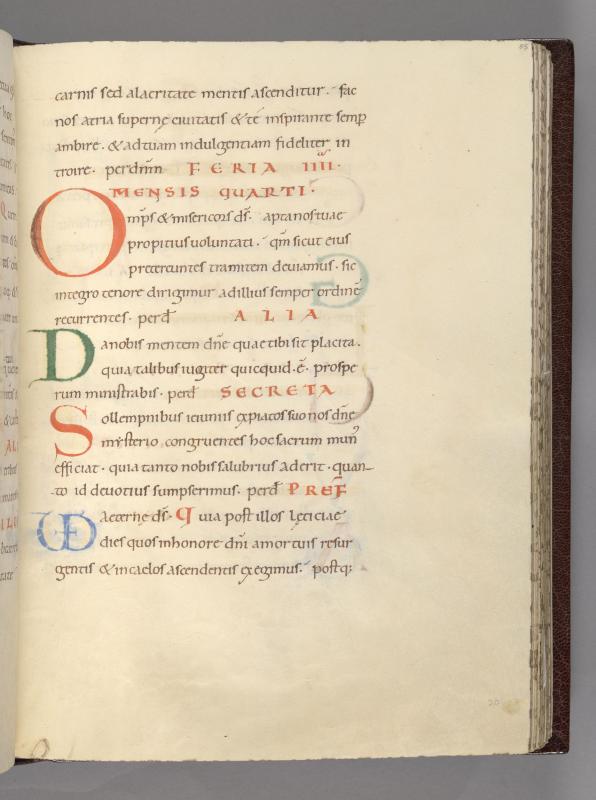 55
carnis sed alacritate mentis ascenditur. fac
nos atria supernę ciuitatis & te inspirante semp̄
ambire. & ad tuam indulgentiam fideliter in
troire. per dn̄m FERIA IIII.
MENSIS QUARTI.
Omp̄s & misericors ds̄. apta nos tuae
propitius uoluntati. qm̄ sicut eius
pretereuntes tramitem deuiamus. sic
integro tenore dirigimur ad illius semper ordinē
recurrentes. per d̄ ALIA
Da nobis mentem dn̄e quae tibi sit placita.
quia talibus iugiter quicquid. ē. prospe
rum ministrabis. per d̄ SECRETA
Sollempnibus ieiuniis expiatos suo nos dn̄e
mysterio congruentes hoc sacrum mun᾿
efficiat. quia tanto nobis salubrius aderit. quan-
to id deuotius sumpserimus. per d̄ PREF̄
UD aeterne ds̄. Quia post illos lęticiae
dies quos in honore dn̄i a mortuis resur
gentis & in caelos ascendentis exegimus. postq;